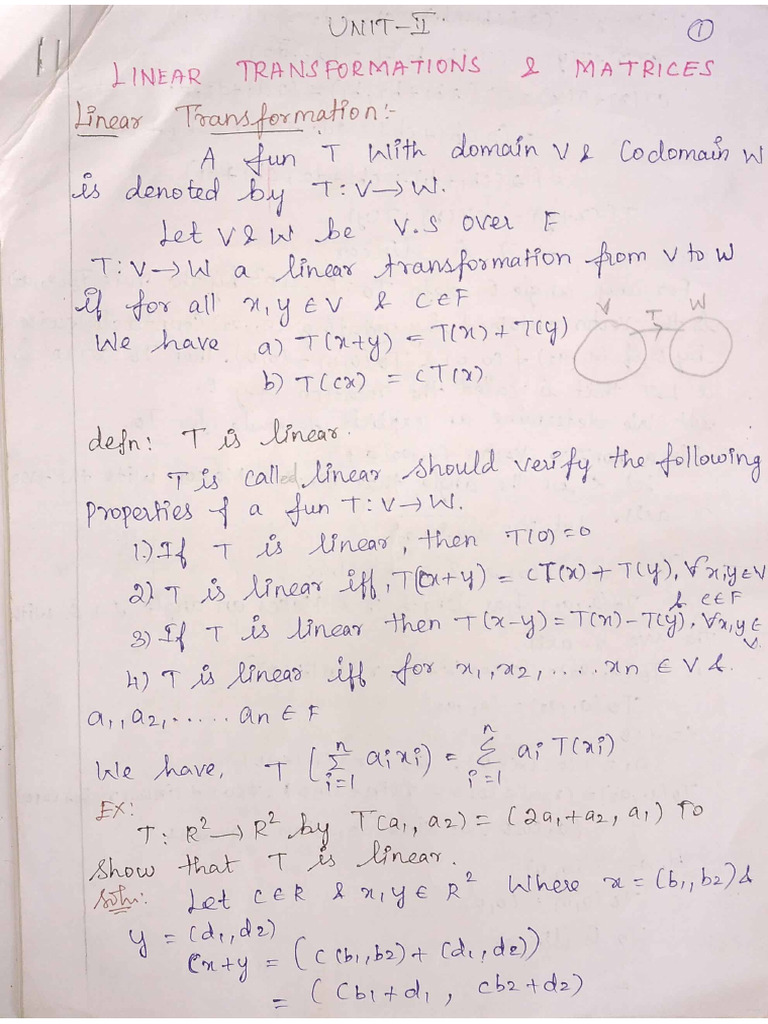 UNIT-II
1
LINEAR TRANSFORMATIONS & MATRICES
Linear Transformation:-
A fun T With domain V & Codomain W
is denoted by T: V→W.
Let V & W be V.S over F
T: V→W a linear transformation from V to W
if for all x, y ∈ V & C∈F
We have a) T(x+y) = T(x)+T(y)
b) T(cx) = cT(x)
V T W
defn: T is linear.
T is called linear should verify the following
Properties of a fun T: V→W.
1.) If T is linear, then T(0)=0
2) T is linear iff, T(cx+y) = cT(x)+T(y), ∀x,y∈V
& c∈F
3) If T is linear then T(x-y)=T(x)-T(y), ∀x,y∈
V.
4) T is linear iff for x1, x2, .... xn ∈ V &
a1, a2, ..... an ∈ F
We have, T (∑ⁿᵢ₌₁ aixi) = ∑ⁿᵢ₌₁ ai T(xi)
EX:
T: R² → R² by T(a1, a2) = (2a1+a2, a1) To
show that T is linear.
Soln: Let C∈R & x,y∈ R² Where x = (b1, b2) &
y = (d1, d2)
Cx+y = (C(b1, b2) + (d1, d2))
= (Cb1+d1, cb2+d2)